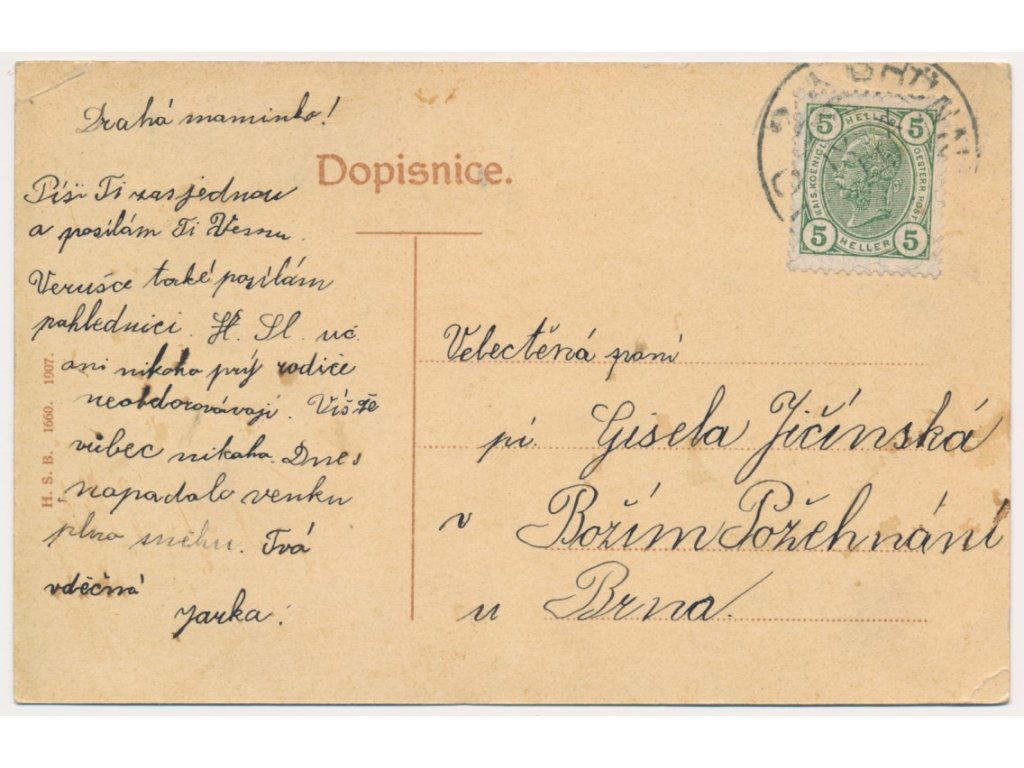 Drahá maminko!
Dopisnice.
Píši Ti zas jednou
a posílám Ti Vesnu.
Verušce také posílám
pohlednici. H. Sl. uč.
ani nikoho prý rodiče
neobdarovávají. Víš že
vůbec nikoho. Dnes
napadalo venku
plno sněhu. Tvá
vděčná
Jarka.
H. S. B. 1660. 1907.
5 HELLER 5
KAIS. KOENIGL. OESTERR. POST
5 HELLER 5
Velectěná paní
pí. Gisela Jičínská
v Božím Požehnání
u Brna.